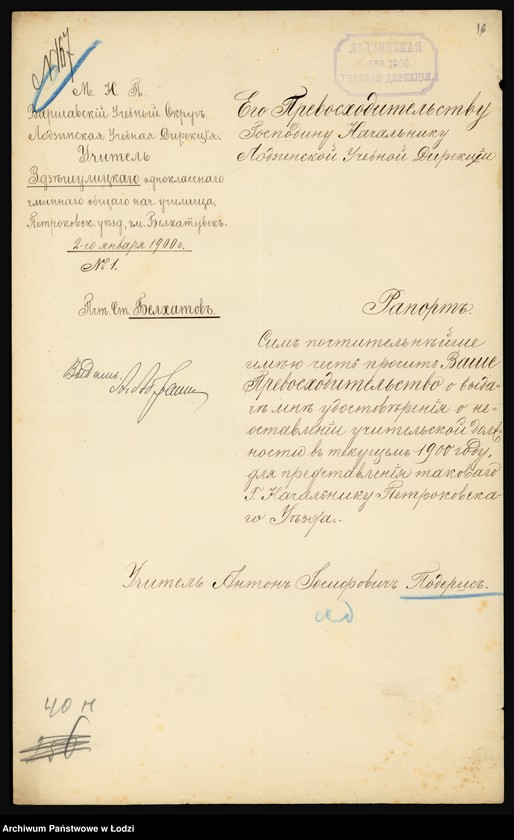 № 167
16
ЛОДЗИНСКАЯ
УЧЕБНАЯ ДИРЕКЦІЯ
М. Н. П.
Варшавскій Учебный Округъ.
Лодзинская Учебная Дирекція.
Учитель
Здзѣшулицкаго однокласснаго
гминнаго общаго нач. училища,
Петроковск. уѣзд., гм. Белхатувск.
2-го января 1900 г.
№ 1.
Пчт. Ст. Белхатовъ.
Его Превосходительству
Господину Начальнику
Лодзинской Учебной Дирекціи
Рапортъ.
Симъ почтительнѣйше
имѣю честь просить Ваше
Превосходительство о выда-
чѣ мнѣ удостовѣренія о не-
оставленіи учительской долж-
ности въ текущемъ 1900 году,
для представленія таковаго
Г. Начальнику Петроковска-
го Уѣзда.
Выдать.
Учитель Антонъ Іосифовичъ Подерисъ.
40 н
Archiwum Państwowe w Łodzi